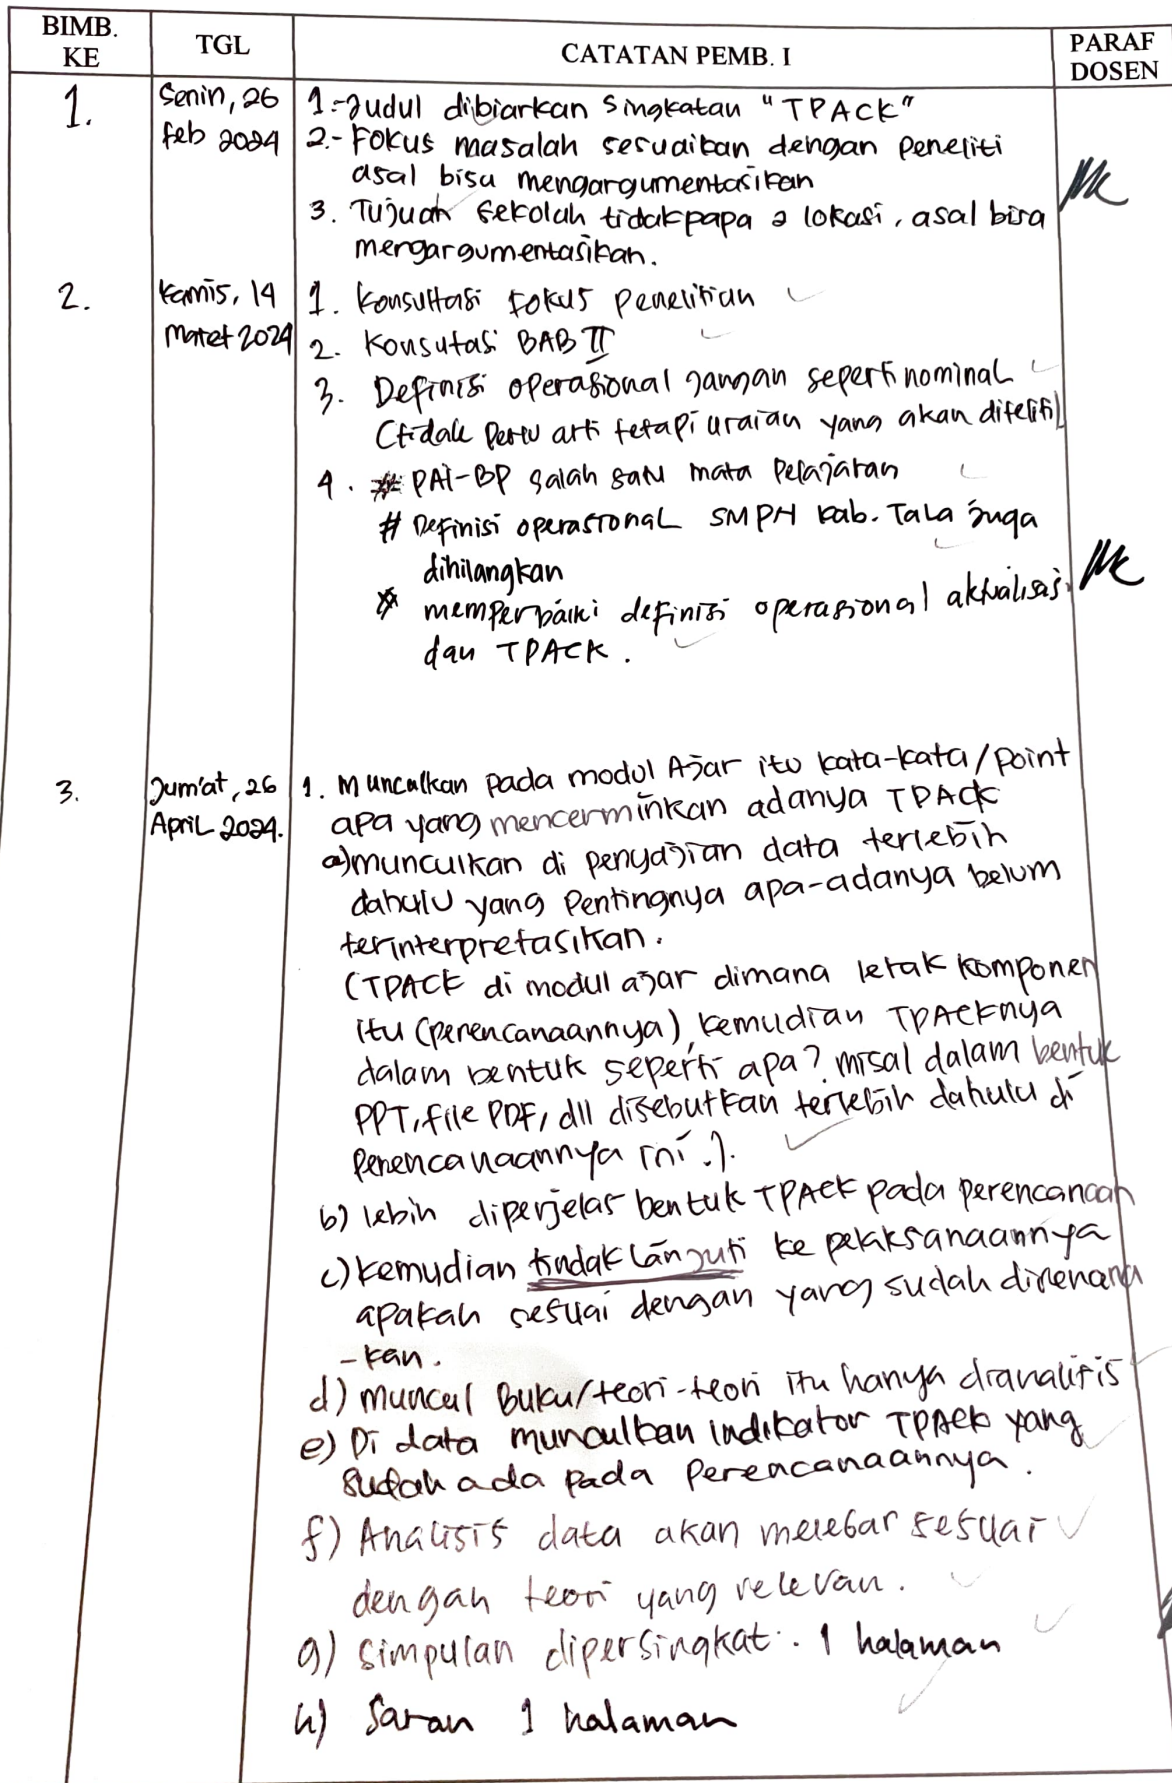 BIMB. KE
TGL
CATATAN PEMB. I
PARAF DOSEN
1.
Senin, 26
feb 2024
1.- Judul dibiarkan singkatan "TPACK"
2.- Fokus masalah sesuaikan dengan peneliti
asal bisa mengargumentasikan
3. Tujuan sekolah tidakpapa 2 lokasi, asal bisa
mengargumentasikan.
2.
Kamis, 14
Maret 2024
1. Konsultasi fokus penelitian
2. Konsutasi BAB II
3. Definisi operasional jangan seperti nominal
(tidak perlu arti tetapi uraian yang akan diteliti)
4. # PAI-BP salah satu mata pelajaran
# Definisi operasional SMPN kab. Tala juga
dihilangkan
* memperbaiki definisi operasional aktualisasi
dan TPACK.
3.
Jum'at, 26
April 2024.
1. Munculkan pada modul Ajar itu kata-kata/point
apa yang mencerminkan adanya TPACK
a) munculkan di penyajian data terlebih
dahulu yang Pentingnya apa-adanya belum
terinterpretasikan.
(TPACK di modul ajar dimana letak komponen
itu (perencanaannya), kemudian TPACKnya
dalam bentuk seperti apa? misal dalam bentuk
PPT, file PDF, dll disebutkan terlebih dahulu di
Perencanaannya ini.).
b) lebih diperjelas bentuk TPACK pada perencanaan
c) kemudian tindak lanjuti ke pelaksanaannya
apakah sesuai dengan yang sudah direncana
-kan.
d) muncul Buku/teori-teori itu hanya dianalisis
e) Di data munculkan indikator TPACK yang
sudah ada pada Perencanaannya.
f) Analisis data akan melebar sesuai
dengan teori yang relevan.
g) simpulan dipersingkat. 1 halaman
h) Saran 1 halaman